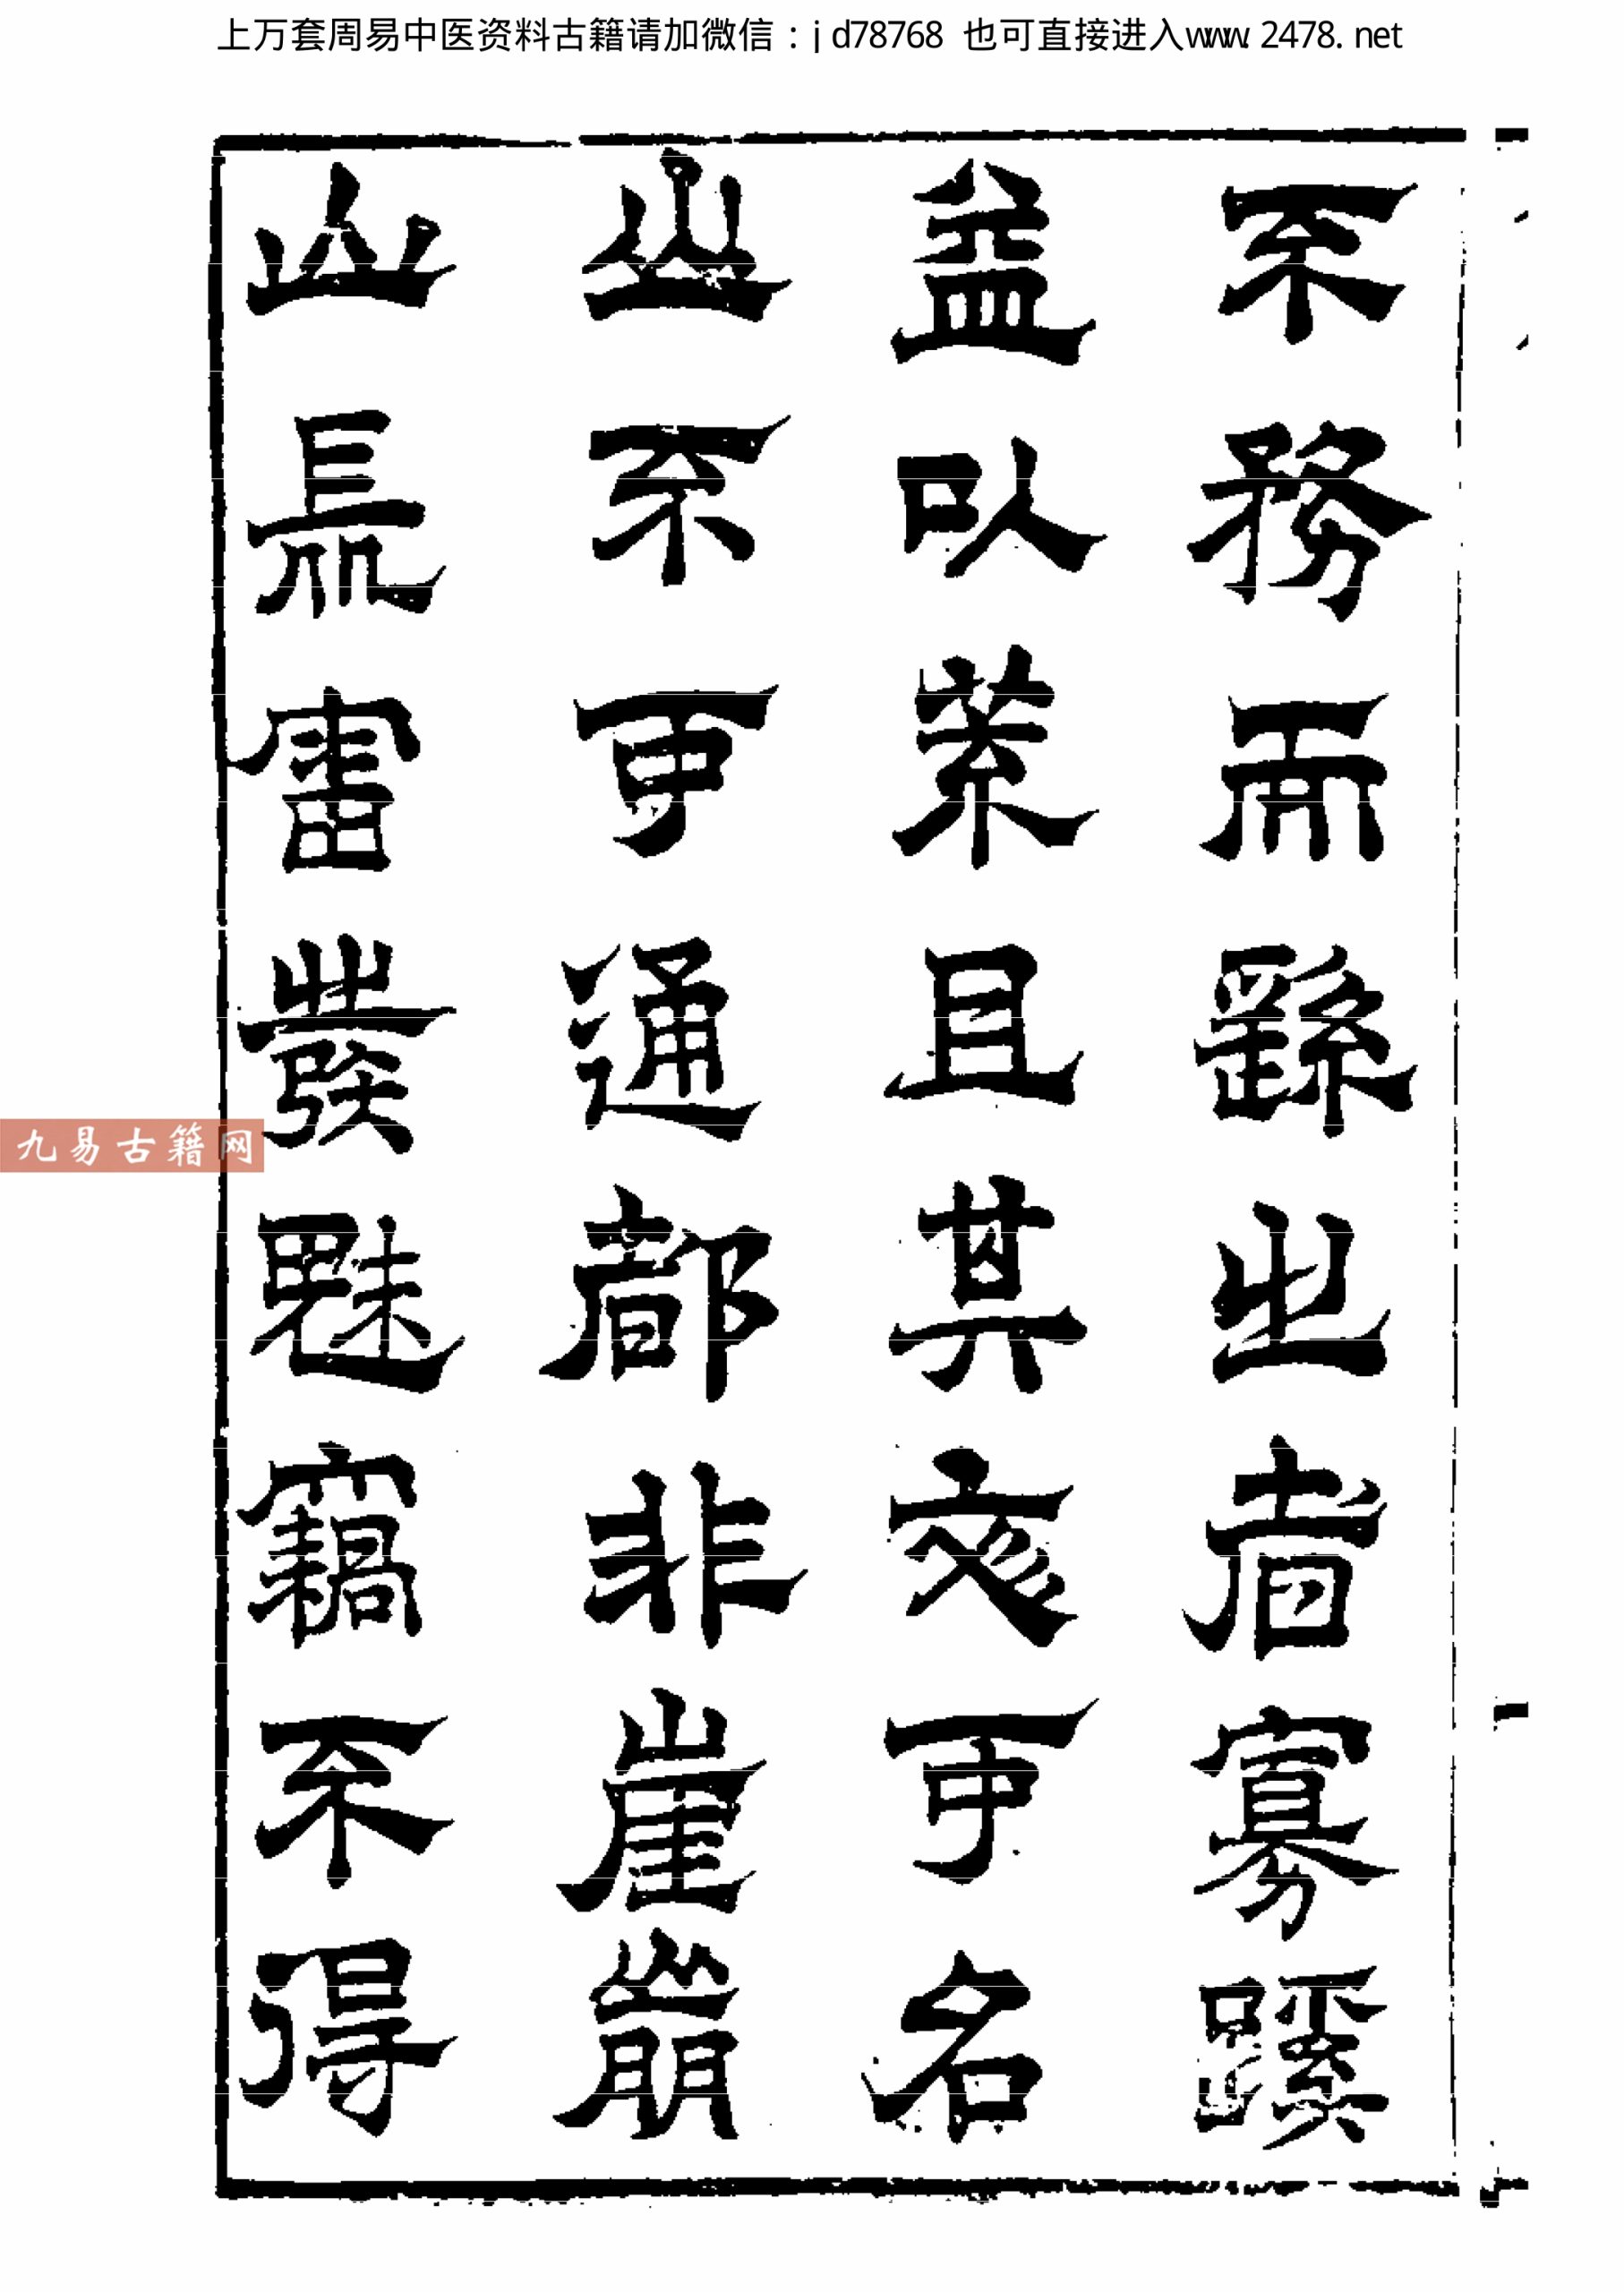 上万套周易中医资料古籍请加微信：jd78768 也可直接进入www.2478.net
不務而繇出者寡蹊
益以業且其交可名
山不可通都非崖崩
山長畱發魅竊不得
九易古籍网